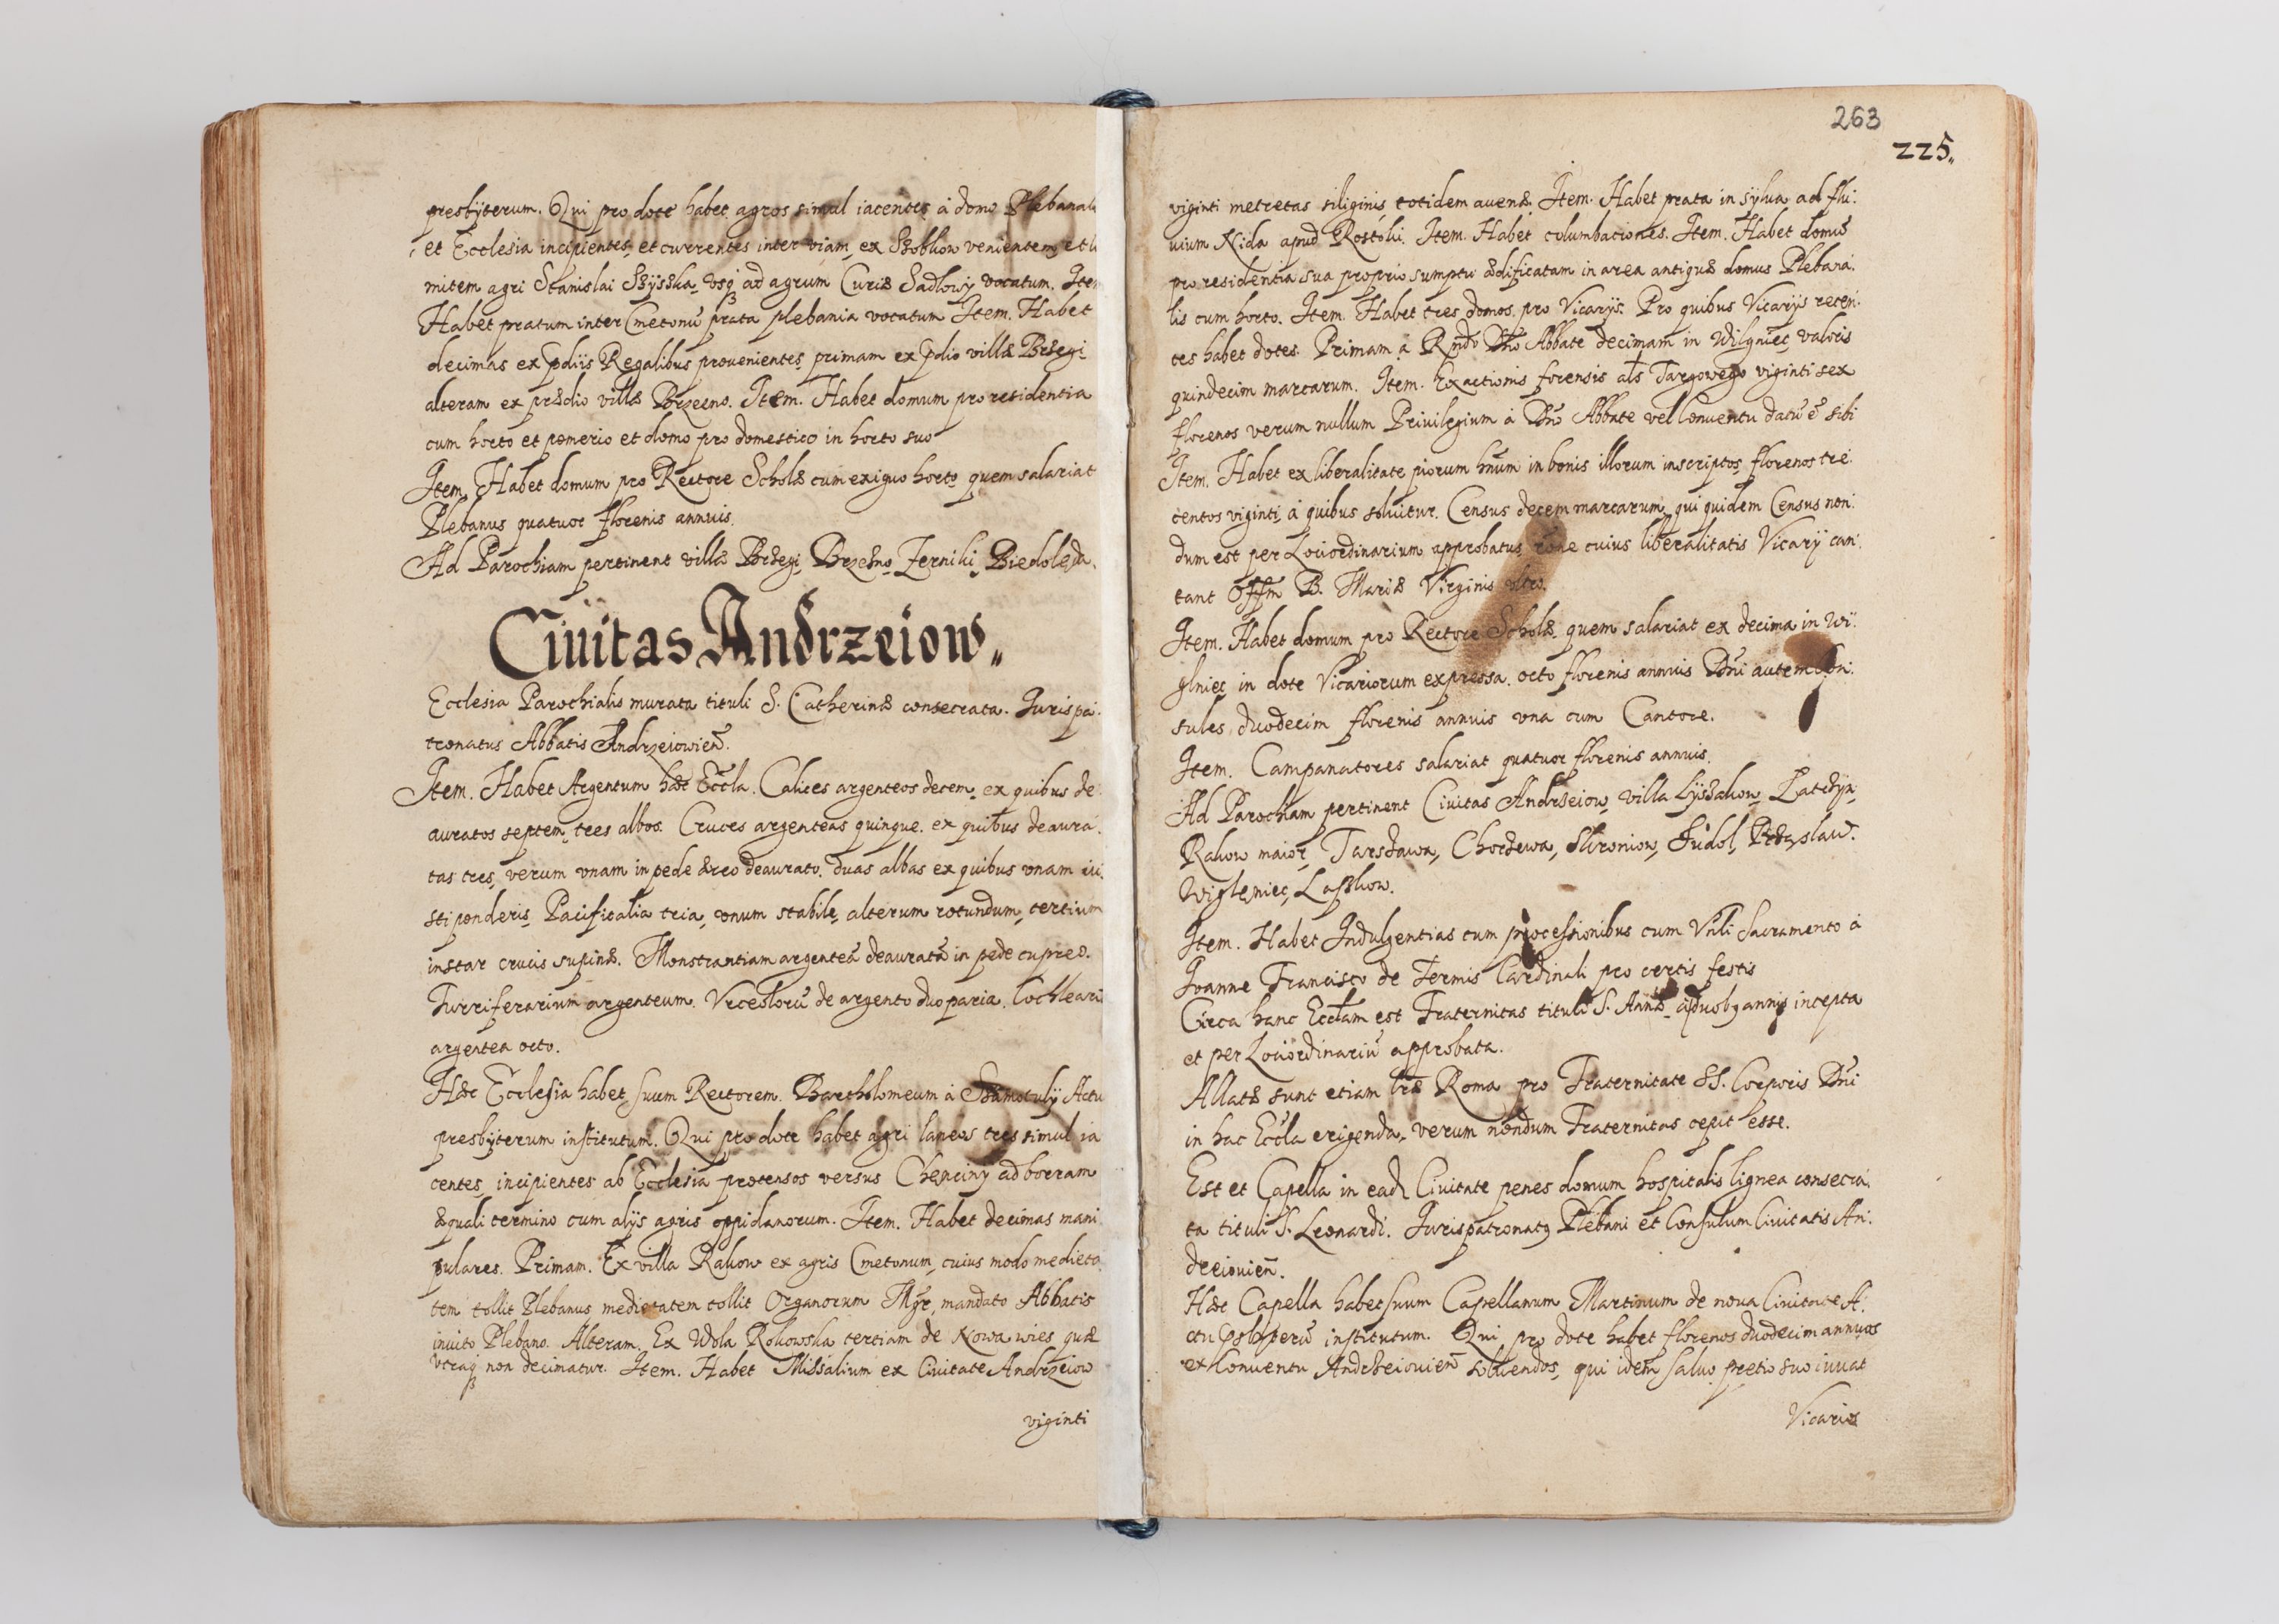 presbÿterum. Qui pro dote habet agros simul iacentes à domo Plebanali
et Ecclesia incipientes, et currentes inter viam, ex Szobkow venientem, et li
mitem agri Stanislai Szÿszka, vsq ad agrum Curiæ Sadlowÿ vocatum. Item
Habet pratum inter Cmetonũ prata plebania vocatum Item. Habet
decimas ex pdijs Regalibus prouenientes, primam ex pdio villæ Brzegi
alteram ex prædio villæ Brzeeno. Item. Habet domum pro residentia
cum horto et pomerio et domo pro domestico in horto suo
Item. Habet domum pro Rectore Scholæ cum exiguo horto quem salariat
Plebanus quatuor florenis annuis.
Ad Parochiam pertinent villæ Brzegi, Brzezno, Zerniki, Biedolęda.
Ciuitas Andrzeiow
Ecclesia Parochialis murata tituli S. Catherinæ consecrata. Iuris pa:
tronatus Abbatis Andrzeiowieñ.
Item. Habet Argentum hæc Eccła. Calices argenteos decem, ex quibus de
auratos septem, tres albos. Cruces argenteas quinque. ex quibus deaura:
tas tres, verum vnam in pede æreo deaurato. duas albas ex quibus vnam iu:
sti ponderis, Pacificalia tria, vnum stabile, alterum rotundum, tertium
instar crucis supinæ. Monstrantiam argenteã deauratã in pede cupreo.
Turriferarium argenteum. Vrceolorũ de argento duo paria. Cochlearia
argentea octo.
Hæc Ecclesia habet suum Rectorem. Bartholomeum à Szamotulÿ Actu
presbÿterum institutum. Qui pro dote habet agri laneos tres simul ia
centes, incipientes ab Ecclesia protensos versus Chenciny ad borram
æquali termino cum alijs agris oppidanorum. Item. Habet decimas mani
pulares. Primam. Ex villa Rakow ex agris Cmetonum, cuius modo medieta
tem tollit Plebanus medietatem tollit Organorum Mgr, mandato Abbatis
inuito Plebano. Alteram. Ex Wola Rokowska tertiam de Nowa wies, quæ
vtraq non decimatur. Item. Habet Missalium ex Ciuitate Andrzeiow
viginti
263
225.
viginti metretas siliginis totidem auenæ. Item. Habet prata in sÿlua ad flu:
uium Nida apud Rostoki. Item. Habet columbationes. Item. Habet domũ
pro residentia sua proprio sumptu ædificatam in area antiquæ domus Plebana:
lis cum horto. Item. Habet tres domos pro Vicarÿs. Pro quibus Vicarÿs recen:
tes habet dotes. Primam à Rndo Dño Abbate decimam in Wilgniec, valoris
quindecim marcarum. Item. Exactionis forensis als Targowego viginti sex
florenos verum nullum Priuilegium à Dño Abbate vel Conuentu datũ ẽ sibi
Item. Habet ex liberalitate piorum hñum in bonis illorum inscriptos florenos tre:
centos viginti, à quibus soluitur. Census decem marcarum, qui quidem Census non:
dum est per Lociordinarium approbatus, rõne cuius liberalitatis Vicarÿ can:
tant Offm B. Mariæ Virginis
Item. Habet domum pro Rectore Scholæ, quem salariat ex decima in Wi:
glniec, in dote Vicariorum expressa. octo florenis annuis Dñi autem Con:
sules, duodecim florenis annuis vna cum Cantore.
Item. Campanatores salariat quatuor florenis annuis.
Ad Parochiam pertinent Ciuitas Andrzeiow, villa Lÿssakow, Łatczÿn,
Rakow maior, Tarszawa, Chorzewa, Skroniow, Sudol, Przasław.
Wigleniec, Lasskow.
Item. Habet Indulgentias cum processionibus cum Vnli Sacramento à
Joanne Francisco de Termis Cardinali pro certis festis
Circa hanc Ecclam est Fraternitas tituli S. Annæ, à duobq annis incepta
et per Lociordinariũ approbata.
Allatæ sunt etiam lræ Roma pro Fraternitate SS. Corporis Dñi
in hac Eccla erigenda, verum nondum Fraternitas cepit esse.
Est et Capella in eadẽ Ciuitate penes domum hospitalis lignea consecra:
ta tituli S. Leonardi. Iurispatronatq Plebani et Consulum Ciuitatis An:
drzeiouieñ.
Hæc Capella habet suum Capellanum Martinum de noua Ciuitate A:
ctu Psbyterũ institutum. Qui pro dote habet florenos duodecim annuos
ex Conuentu Andrzeiouieñ soluendos, qui idem saluo pretio suo iuuat
Vicarios